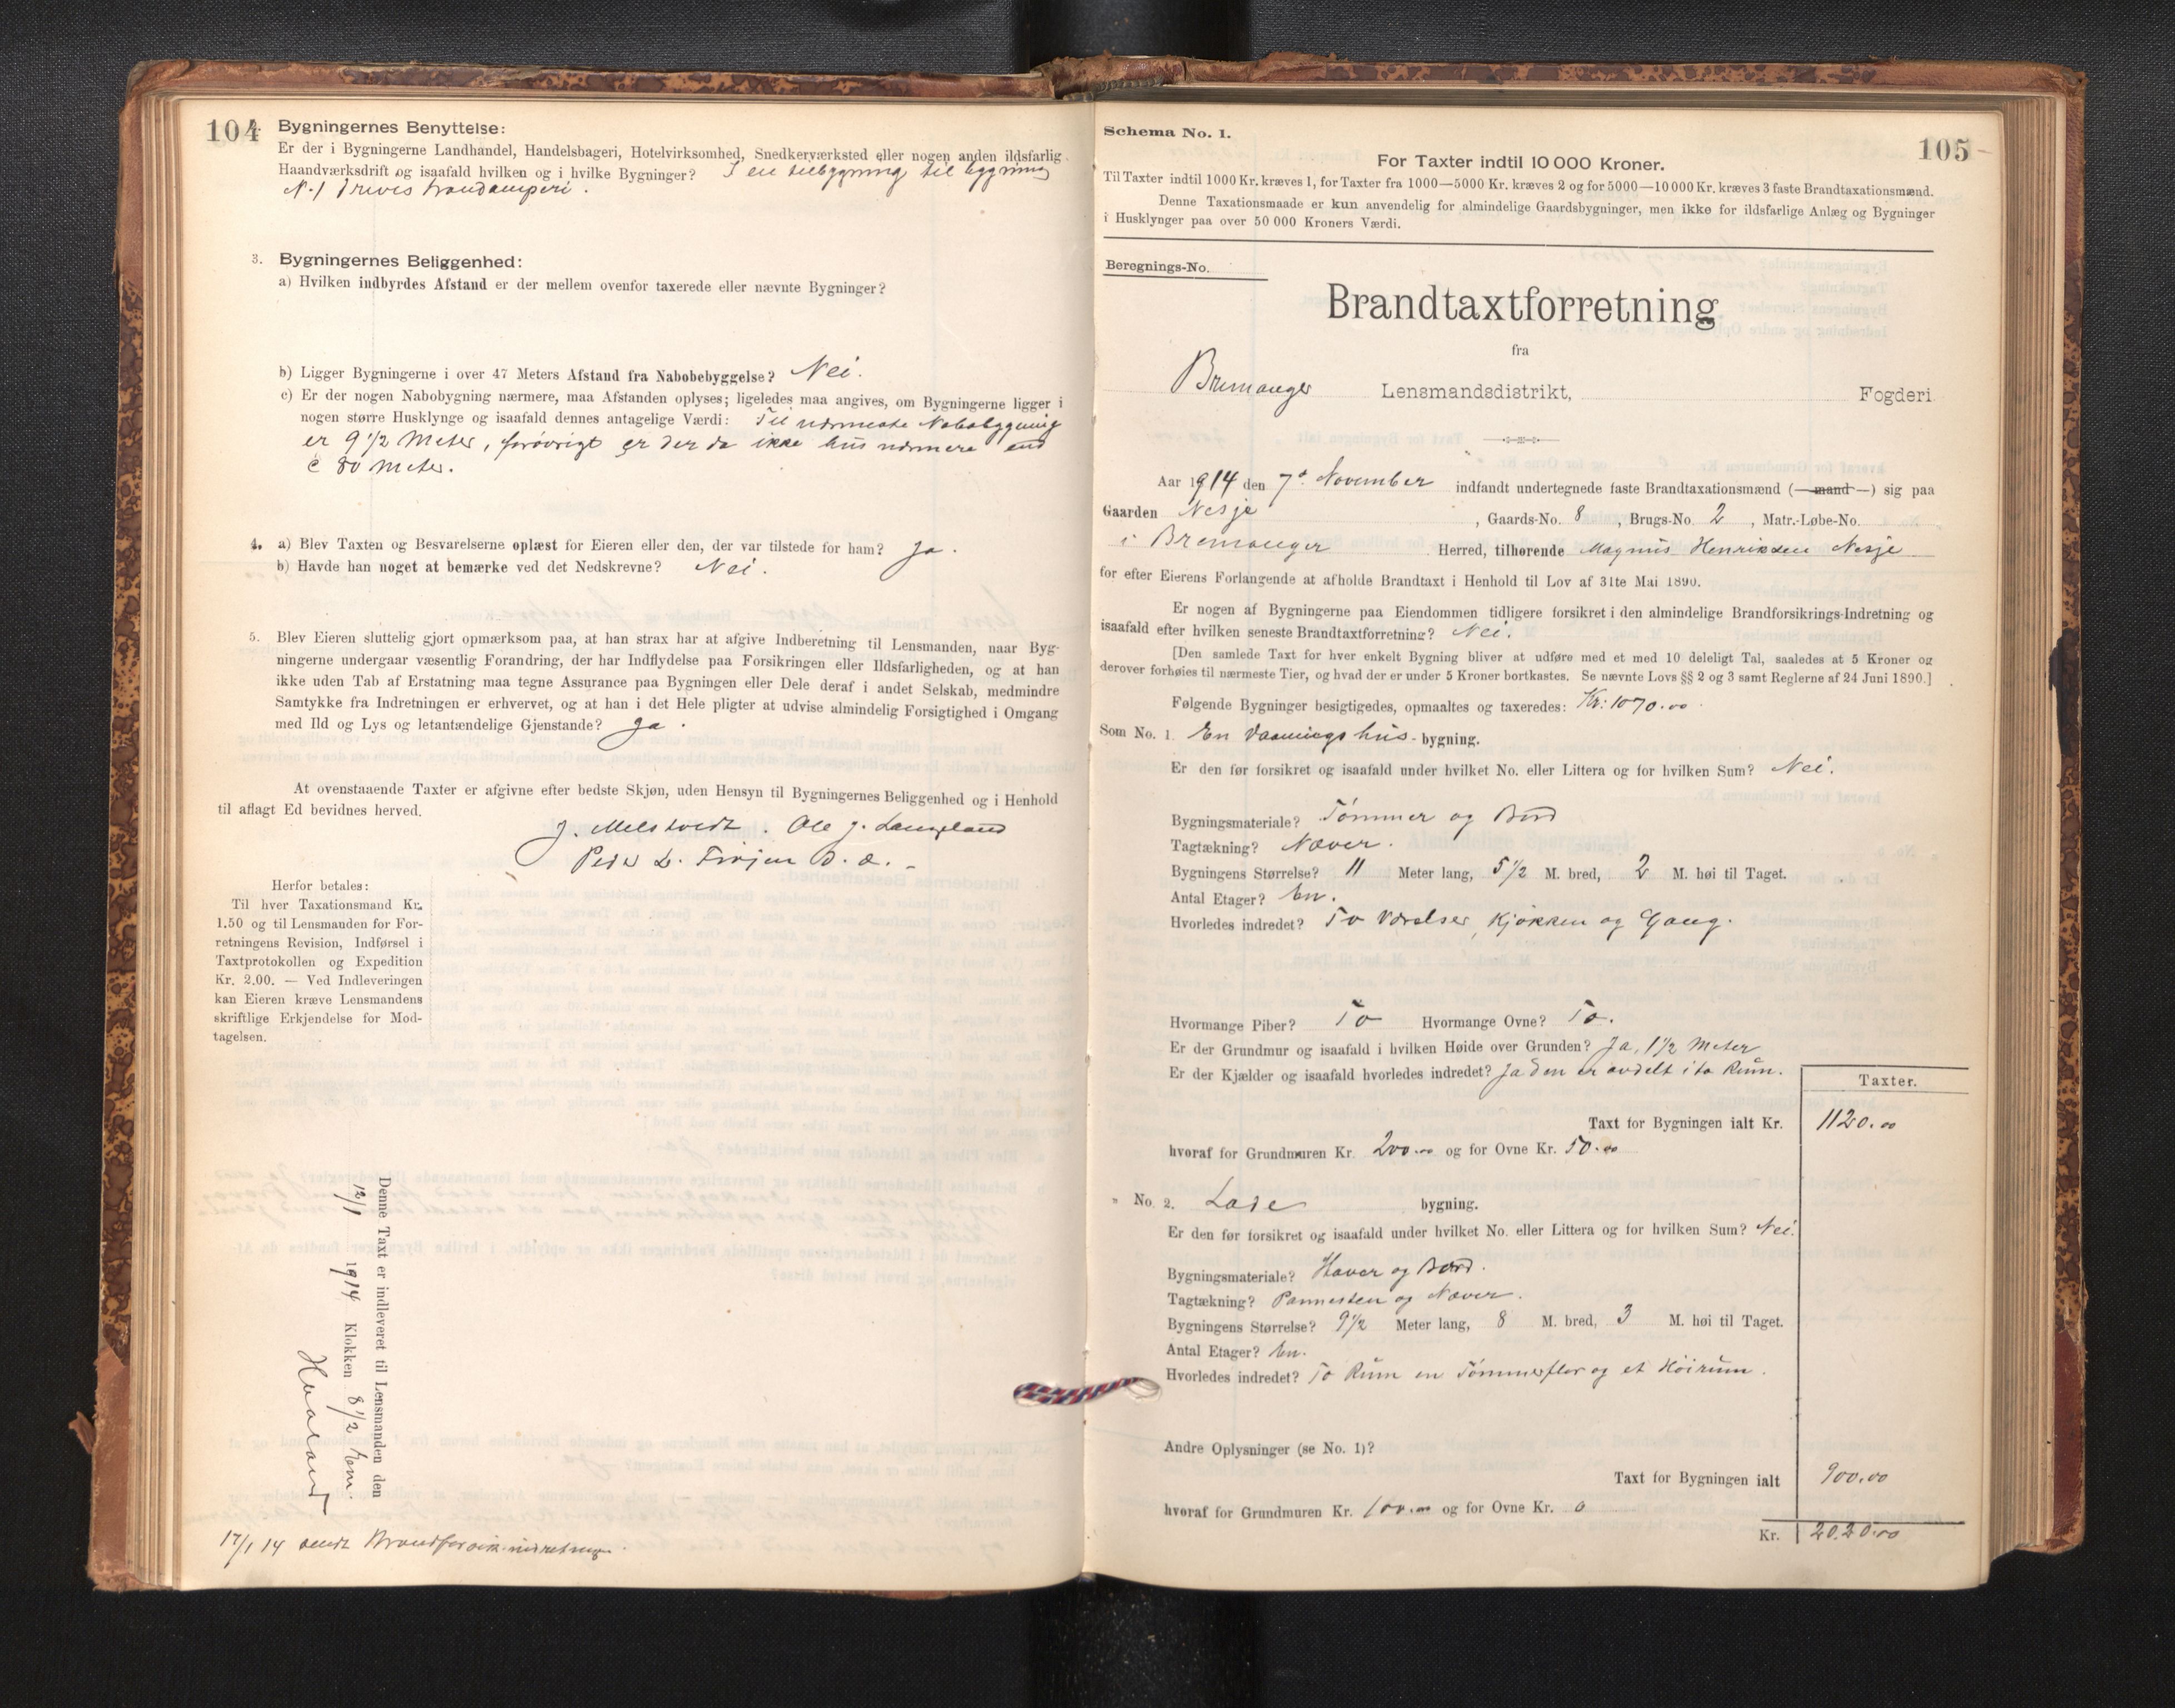 104
Bygningernes Benyttelse:
Er der i Bygningerne Landhandel, Handelsbageri, Hotelvirksomhed, Snedkerværksted eller nogen anden ildsfarlig
Haandværksdrift og isaafald hvilken og i hvilke Bygninger? I en tilbygning til bygning
N. 1 drives trandamperi.
3. Bygningernes Beliggenhed:
a) Hvilken indbyrdes Afstand er der mellem ovenfor taxerede eller nævnte Bygninger?
b) Ligger Bygningerne i over 47 Meters Afstand fra Nabobebyggelse? Nei.
c) Er der nogen Nabobygning nærmere, maa Afstanden oplyses; ligeledes maa angives, om Bygningerne ligger i
nogen større Husklynge og isaafald dennes antagelige Værdi: Til nærmeste Nabobygning
er 9 1/2 Meter, forøvrigt er der da ikke hus nærmere end
c 80 Meter.
4. a) Blev Taxten og Besvarelserne oplæst for Eieren eller den, der var tilstede for ham? Ja.
b) Havde han noget at bemærke ved det Nedskrevne? Nei.
5. Blev Eieren sluttelig gjort opmærksom paa, at han strax har at afgive Indberetning til Lensmanden, naar Byg-
ningerne undergaar væsentlig Forandring, der har Indflydelse paa Forsikringen eller Ildsfarligheden, og at han
ikke uden Tab af Erstatning maa tegne Assurance paa Bygningen eller Dele deraf i andet Selskab, medmindre
Samtykke fra Indretningen er erhvervet, og at han i det Hele pligter at udvise almindelig Forsigtighed i Omgang
med Ild og Lys og letantændelige Gjenstande? Ja.
At ovenstaaende Taxter er afgivne efter bedste Skjøn, uden Hensyn til Bygningernes Beliggenhed og i Henhold
til aflagt Ed bevidnes herved.
J. Melstvedt. Ole J. Langeland
Peder L.
Herfor betales:
Til hver Taxationsmand Kr.
1.50 og til Lensmanden for For-
retningens Revision, Indførsel i
Taxtprotokollen og Expedition
Kr. 2.00. — Ved Indleveringen
kan Eieren kræve Lensmandens
skriftlige Erkjendelse for Mod-
tagelsen.
Denne Taxt er indleveret til Lensmanden den
12/1 1914 Klokken 8 1/2 Em.
17/1 14 sendt Brandforsik.indretning.
Schema No. 1.
105
For Taxter indtil 10 000 Kroner.
Til Taxter indtil 1000 Kr. kræves 1, for Taxter fra 1000—5000 Kr. kræves 2 og for 5000—10 000 Kr. kræves 3 faste Brandtaxationsmænd.
Denne Taxationsmaade er kun anvendelig for almindelige Gaardsbygninger, men ikke for ildsfarlige Anlæg og Bygninger
i Husklynger paa over 50 000 Kroners Værdi.
Beregnings-No.
Brandtaxtforretning
fra
Bremanger Lensmandsdistrikt, Fogderi
Aar 1914 den 7de November indfandt undertegnede faste Brandtaxationsmænd (—mand—) sig paa
Gaarden Nesje, Gaards-No. 8, Brugs-No. 2, Matr.-Løbe-No.
i Bremanger Herred, tilhørende Magnus Henriksen Nesje
for efter Eierens Forlangende at afholde Brandtaxt i Henhold til Lov af 31te Mai 1890.
Er nogen af Bygningerne paa Eiendommen tidligere forsikret i den almindelige Brandforsikrings-Indretning og
isaafald efter hvilken seneste Brandtaxtforretning? Nei.
[Den samlede Taxt for hver enkelt Bygning bliver at udføre med et med 10 deleligt Tal, saaledes at 5 Kroner og
derover forhøies til nærmeste Tier, og hvad der er under 5 Kroner bortkastes. Se nævnte Lovs §§ 2 og 3 samt Reglerne af 24 Juni 1890.]
Følgende Bygninger besigtigedes, opmaaltes og taxeredes: Kr: 1070.00
Som No. 1. En Vaaningshus-bygning.
Er den før forsikret og isaafald under hvilket No. eller Littera og for hvilken Sum? Nei.
Bygningsmateriale? Tømmer og Bord
Tagtækning? Næver.
Bygningens Størrelse? 11 Meter lang, 5 1/2 M. bred, 2 M. høi til Taget.
Antal Etager? En.
Hvorledes indredet? To Værelser, Kjøkken og Gang.
Hvormange Piber? To Hvormange Ovne? To.
Er der Grundmur og isaafald i hvilken Høide over Grunden? Ja, 1 1/2 Meter
Er der Kjælder og isaafald hvorledes indredet? Ja den er avdelt i to Rum.
Taxter.
Taxt for Bygningen ialt Kr. 1120.00
hvoraf for Grundmuren Kr. 200.00 og for Ovne Kr. 50.00
" No. 2. Lade bygning.
Er den før forsikret og isaafald under hvilket No. eller Littera og for hvilken Sum? Nei.
Bygningsmateriale? Staver og Bord.
Tagtækning? Pannesten og Næver.
Bygningens Størrelse? 9 1/2 Meter lang, 8 M. bred, 3 M. høi til Taget.
Antal Etager? En.
Hvorledes indredet? To Rum en Tømmerflor og et Høirum.
Andre Oplysninger (se No. 1)?
Taxt for Bygningen ialt 900.00
hvoraf for Grundmuren Kr. 100.00 og for Ovne Kr. 0
Kr. 2020.00